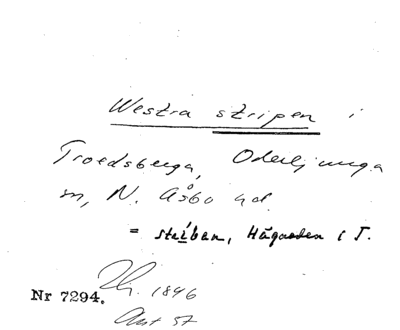 Westra stripen i
Troedsberga, Oderljunga
m, N. Åsbo hd.
= striban, Hågården i T.
Nr 7294. 1846